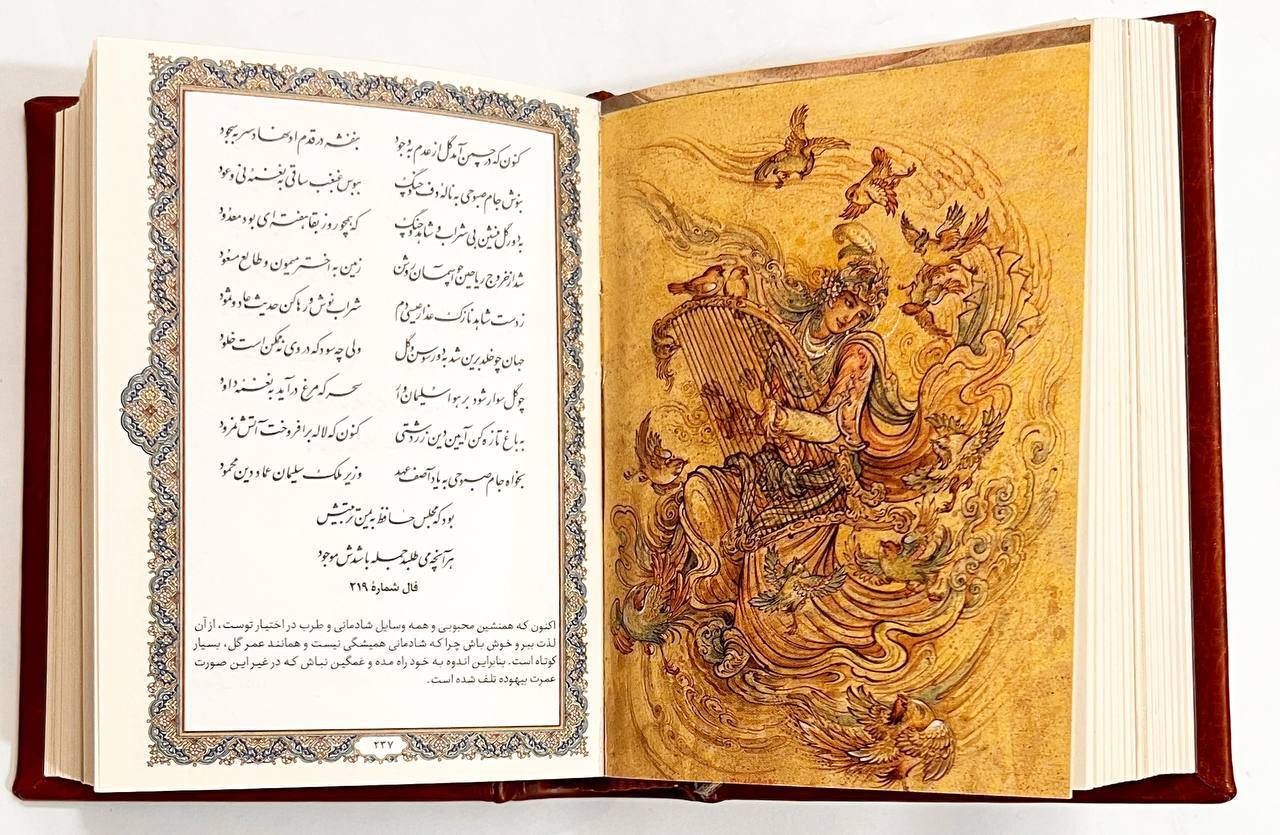 کنون که در چمن آمد گل از عدم به وجود بنفشه در قدم او نهاد سر به سجود
بنوش جام صبوحی به نالهٔ دف و چنگ ببوس غبغب ساقی به نغمهٔ نی و عود
به دور گل منشین بی شراب و شاهد و چنگ که همچو روز بقا هفته‌ای بود معدود
شد از خروج ریاحین چو آسمان روشن زمین به اختر میمون و طالع مسعود
ز دست شاهد نازک عذار عیسی دم شراب نوش و رها کن حدیث عاد و ثمود
جهان چو خلد برین شد به دور سوسن و گل ولی چه سود که در وی نه ممکن است خلود
چو گل سوار شود بر هوا سلیمان وار سحر که مرغ درآید به نغمهٔ داود
به باغ تازه کن آیین دین زردشتی کنون که لاله برافروخت آتش نمرود
بخواه جام صبوحی به یاد آصف عهد وزیر ملک سلیمان عماد دین محمود
بود که مجلس حافظ به یمن تربیتش
هر آنچه می طلبد جمله باشدش موجود
فال شمارهٔ ۲۱۹
اکنون که همنشین محبوبی و همه وسایل شادمانی و طرب در اختیار توست، از آن
لذت ببر و خوش باش چرا که شادمانی همیشگی نیست و همانند عمر گل، بسیار
کوتاه است. بنابراین اندوه به خود راه مده و غمگین نباش که در غیر این صورت
عمرت بیهوده تلف شده است.
۲۳۷